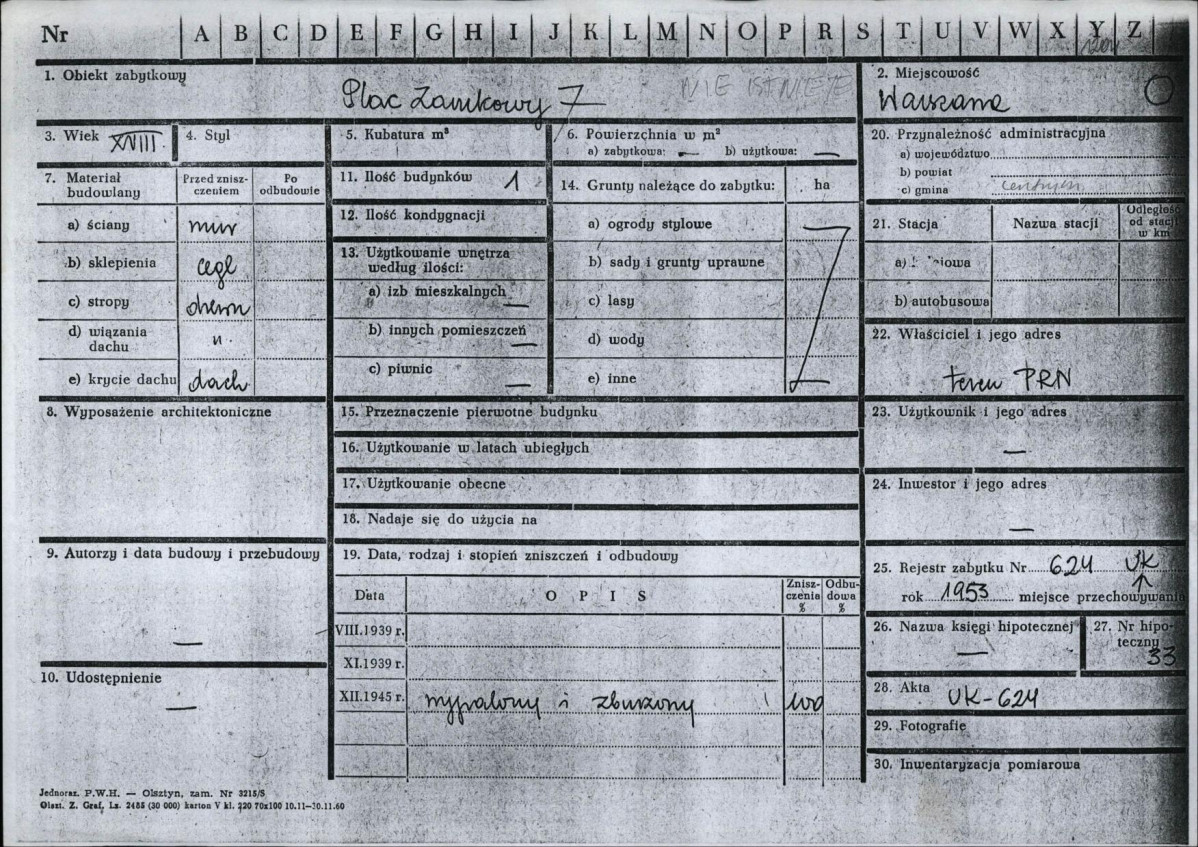 Nr A B C D E F G H I J K L M N O P R S T U V W X Y Z
1. Obiekt zabytkowy
Plac Zamkowy 7
NIE ISTNIEJE
2. Miejscowość
Warszawa
3. Wiek XVIII.
4. Styl
5. Kubatura m³
6. Powierzchnia w m²
a) zabytkowa: — b) użytkowa: —
7. Materiał budowlany
Przed zniszczeniem
Po odbudowie
a) ściany mur
b) sklepienia cegl
c) stropy drewn
d) wiązania dachu "
e) krycie dachu dach
8. Wyposażenie architektoniczne
9. Autorzy i data budowy i przebudowy
—
10. Udostępnienie
—
11. Ilość budynków 1
12. Ilość kondygnacji
13. Użytkowanie wnętrza według ilości:
a) izb mieszkalnych —
b) innych pomieszczeń —
c) piwnic —
14. Grunty należące do zabytku: ha
a) ogrody stylowe
b) sady i grunty uprawne
c) lasy
d) wody
e) inne
15. Przeznaczenie pierwotne budynku
16. Użytkowanie w latach ubiegłych
17. Użytkowanie obecne
18. Nadaje się do użycia na
19. Data, rodzaj i stopień zniszczeń i odbudowy
Data
O P I S
Zniszczenia %
Odbudowa %
VIII.1939 r.
XI.1939 r.
XII.1945 r. wypalony i zburzony 100
20. Przynależność administracyjna
a) województwo
b) powiat
c) gmina centrum
21. Stacja
Nazwa stacji
Odległość od stacji w km
b) autobusowa
22. Właściciel i jego adres
teren PRN
23. Użytkownik i jego adres
—
24. Inwestor i jego adres
—
25. Rejestr zabytku Nr 624 UK
rok 1953 miejsce przechowywania
26. Nazwa księgi hipotecznej
—
27. Nr hipoteczny
33
28. Akta UK-624
29. Fotografie
30. Inwentaryzacja pomiarowa
Jednoraz. P.W.H. — Olsztyn, zam. Nr 3215/S
Olszt. Z. Graf. Lz. 2485 (30 000) karton V kl. 220 70x100 10.11—30.11.60